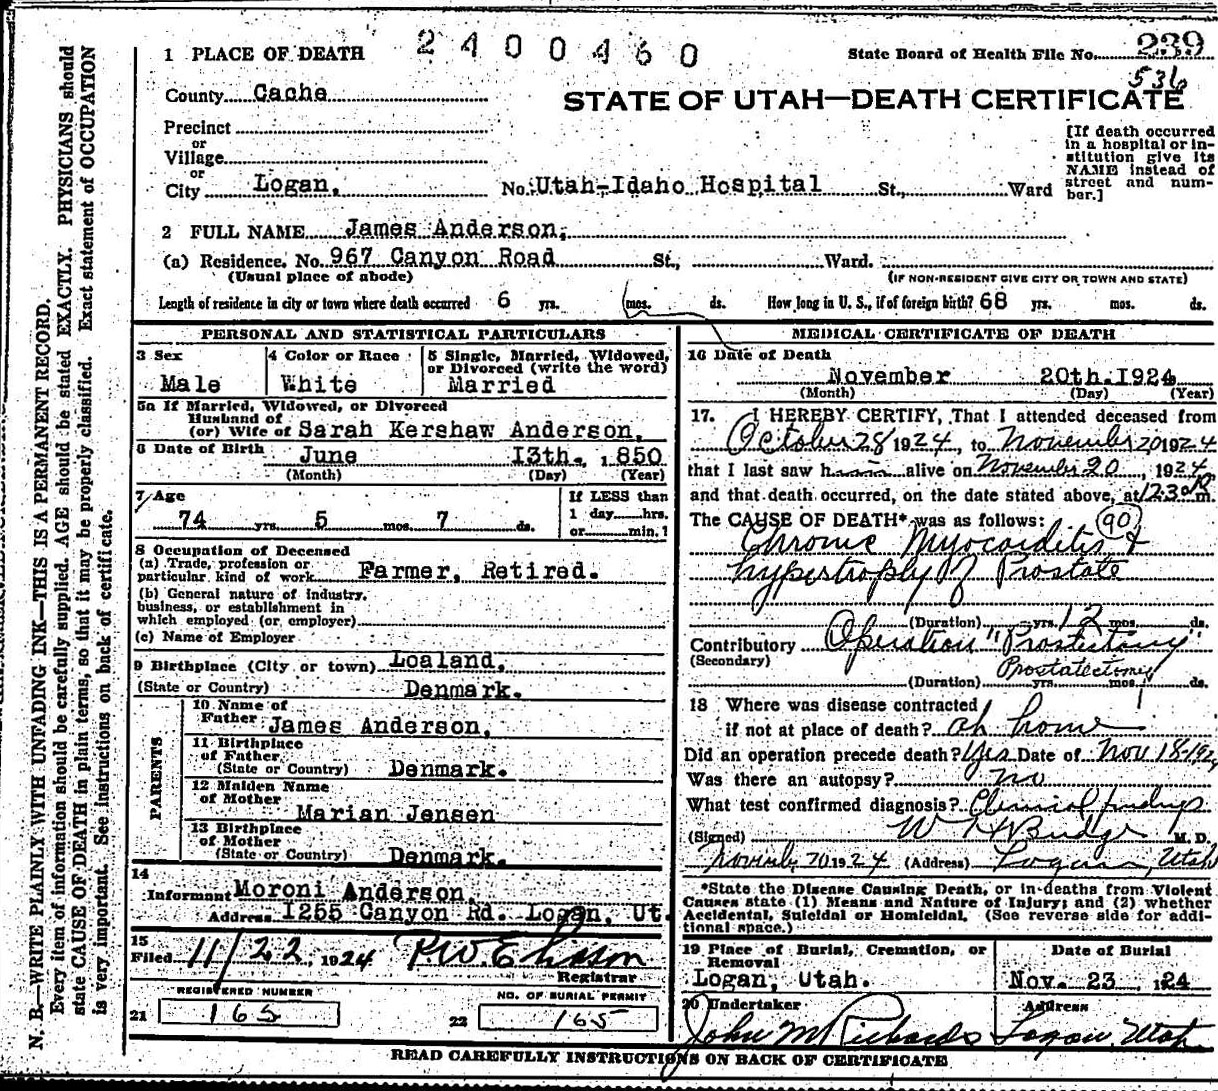 1 PLACE OF DEATH 2400460 State Board of Health File No. 239
536
County Cache
STATE OF UTAH—DEATH CERTIFICATE
Precinct
or
Village
or
City Logan, No. Utah-Idaho Hospital St., Ward
[If death occurred
in a hospital or in-
stitution give its
NAME instead of
street and num-
ber.]
2 FULL NAME James Anderson,
(a) Residence. No. 967 Canyon Road St., Ward.
(Usual place of abode) (IF NON-RESIDENT GIVE CITY OR TOWN AND STATE)
Length of residence in city or town where death occurred 6 yrs. mos. ds. How long in U. S., if of foreign birth? 68 yrs. mos. ds.
PERSONAL AND STATISTICAL PARTICULARS
3 Sex 4 Color or Race 5 Single, Married, Widowed,
or Divorced (write the word)
Male White Married
5a If Married, Widowed, or Divorced
Husband of
(or) Wife of Sarah Kershaw Anderson,
6 Date of Birth June 13th., 1850
(Month) (Day) (Year)
7 Age If LESS than
1 day hrs.
74 yrs. 5 mos. 7 ds. or min.?
8 Occupation of Deceased
(a) Trade, profession or
particular kind of work Farmer, Retired.
(b) General nature of industry,
business, or establishment in
which employed (or employer)
(c) Name of Employer
9 Birthplace (City or town) Loaland,
(State or Country) Denmark.
PARENTS
10 Name of
Father James Anderson,
11 Birthplace
of Father
(State or Country) Denmark.
12 Maiden Name
of Mother
Marian Jensen
13 Birthplace
of Mother
(State or Country) Denmark.
14
Informant Moroni Anderson,
Address 1255 Canyon Rd. Logan, Ut.
15
Filed 11/22, 1924 Registrar
REGISTERED NUMBER NO. OF BURIAL PERMIT
21 165 22 165
MEDICAL CERTIFICATE OF DEATH
16 Date of Death
November 20th. 1924
(Month) (Day) (Year)
17. I HEREBY CERTIFY, That I attended deceased from
October 28 1924, to November 20 1924
that I last saw h alive on November 20, 1924
and that death occurred, on the date stated above, at m.
The CAUSE OF DEATH* was as follows: 90
Chronic Myocarditis &
hypertrophy of Prostate
(Duration) yrs. 12 mos. ds.
Contributory Operation
(Secondary) Prostatectomy
(Duration) yrs. mos. ds.
18 Where was disease contracted
if not at place of death? at home
Did an operation precede death? Yes Date of Nov 18-1924
Was there an autopsy? no
What test confirmed diagnosis? Clinical findings
(Signed) W H Budge M. D.
November 20 1924 (Address) Logan, Utah
*State the Disease Causing Death, or in deaths from Violent
Causes state (1) Means and Nature of Injury; and (2) whether
Accidental, Suicidal or Homicidal. (See reverse side for addi-
tional space.)
19 Place of Burial, Cremation, or
Removal Date of Burial
Logan, Utah. Nov. 23, 1924
20 Undertaker Address
John M Richards Logan, Utah
READ CAREFULLY INSTRUCTIONS ON BACK OF CERTIFICATE
N. B.—WRITE PLAINLY WITH UNFADING INK—THIS IS A PERMANENT RECORD.
Every item of information should be carefully supplied. AGE should be stated EXACTLY. PHYSICIANS should
state CAUSE OF DEATH in plain terms, so that it may be properly classified. Exact statement of OCCUPATION
is very important. See instructions on back of certificate.